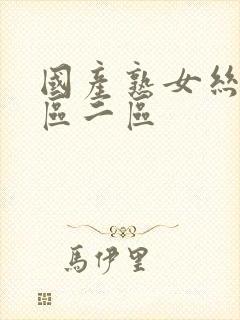 國產熟女絲
區二區
馬伊里